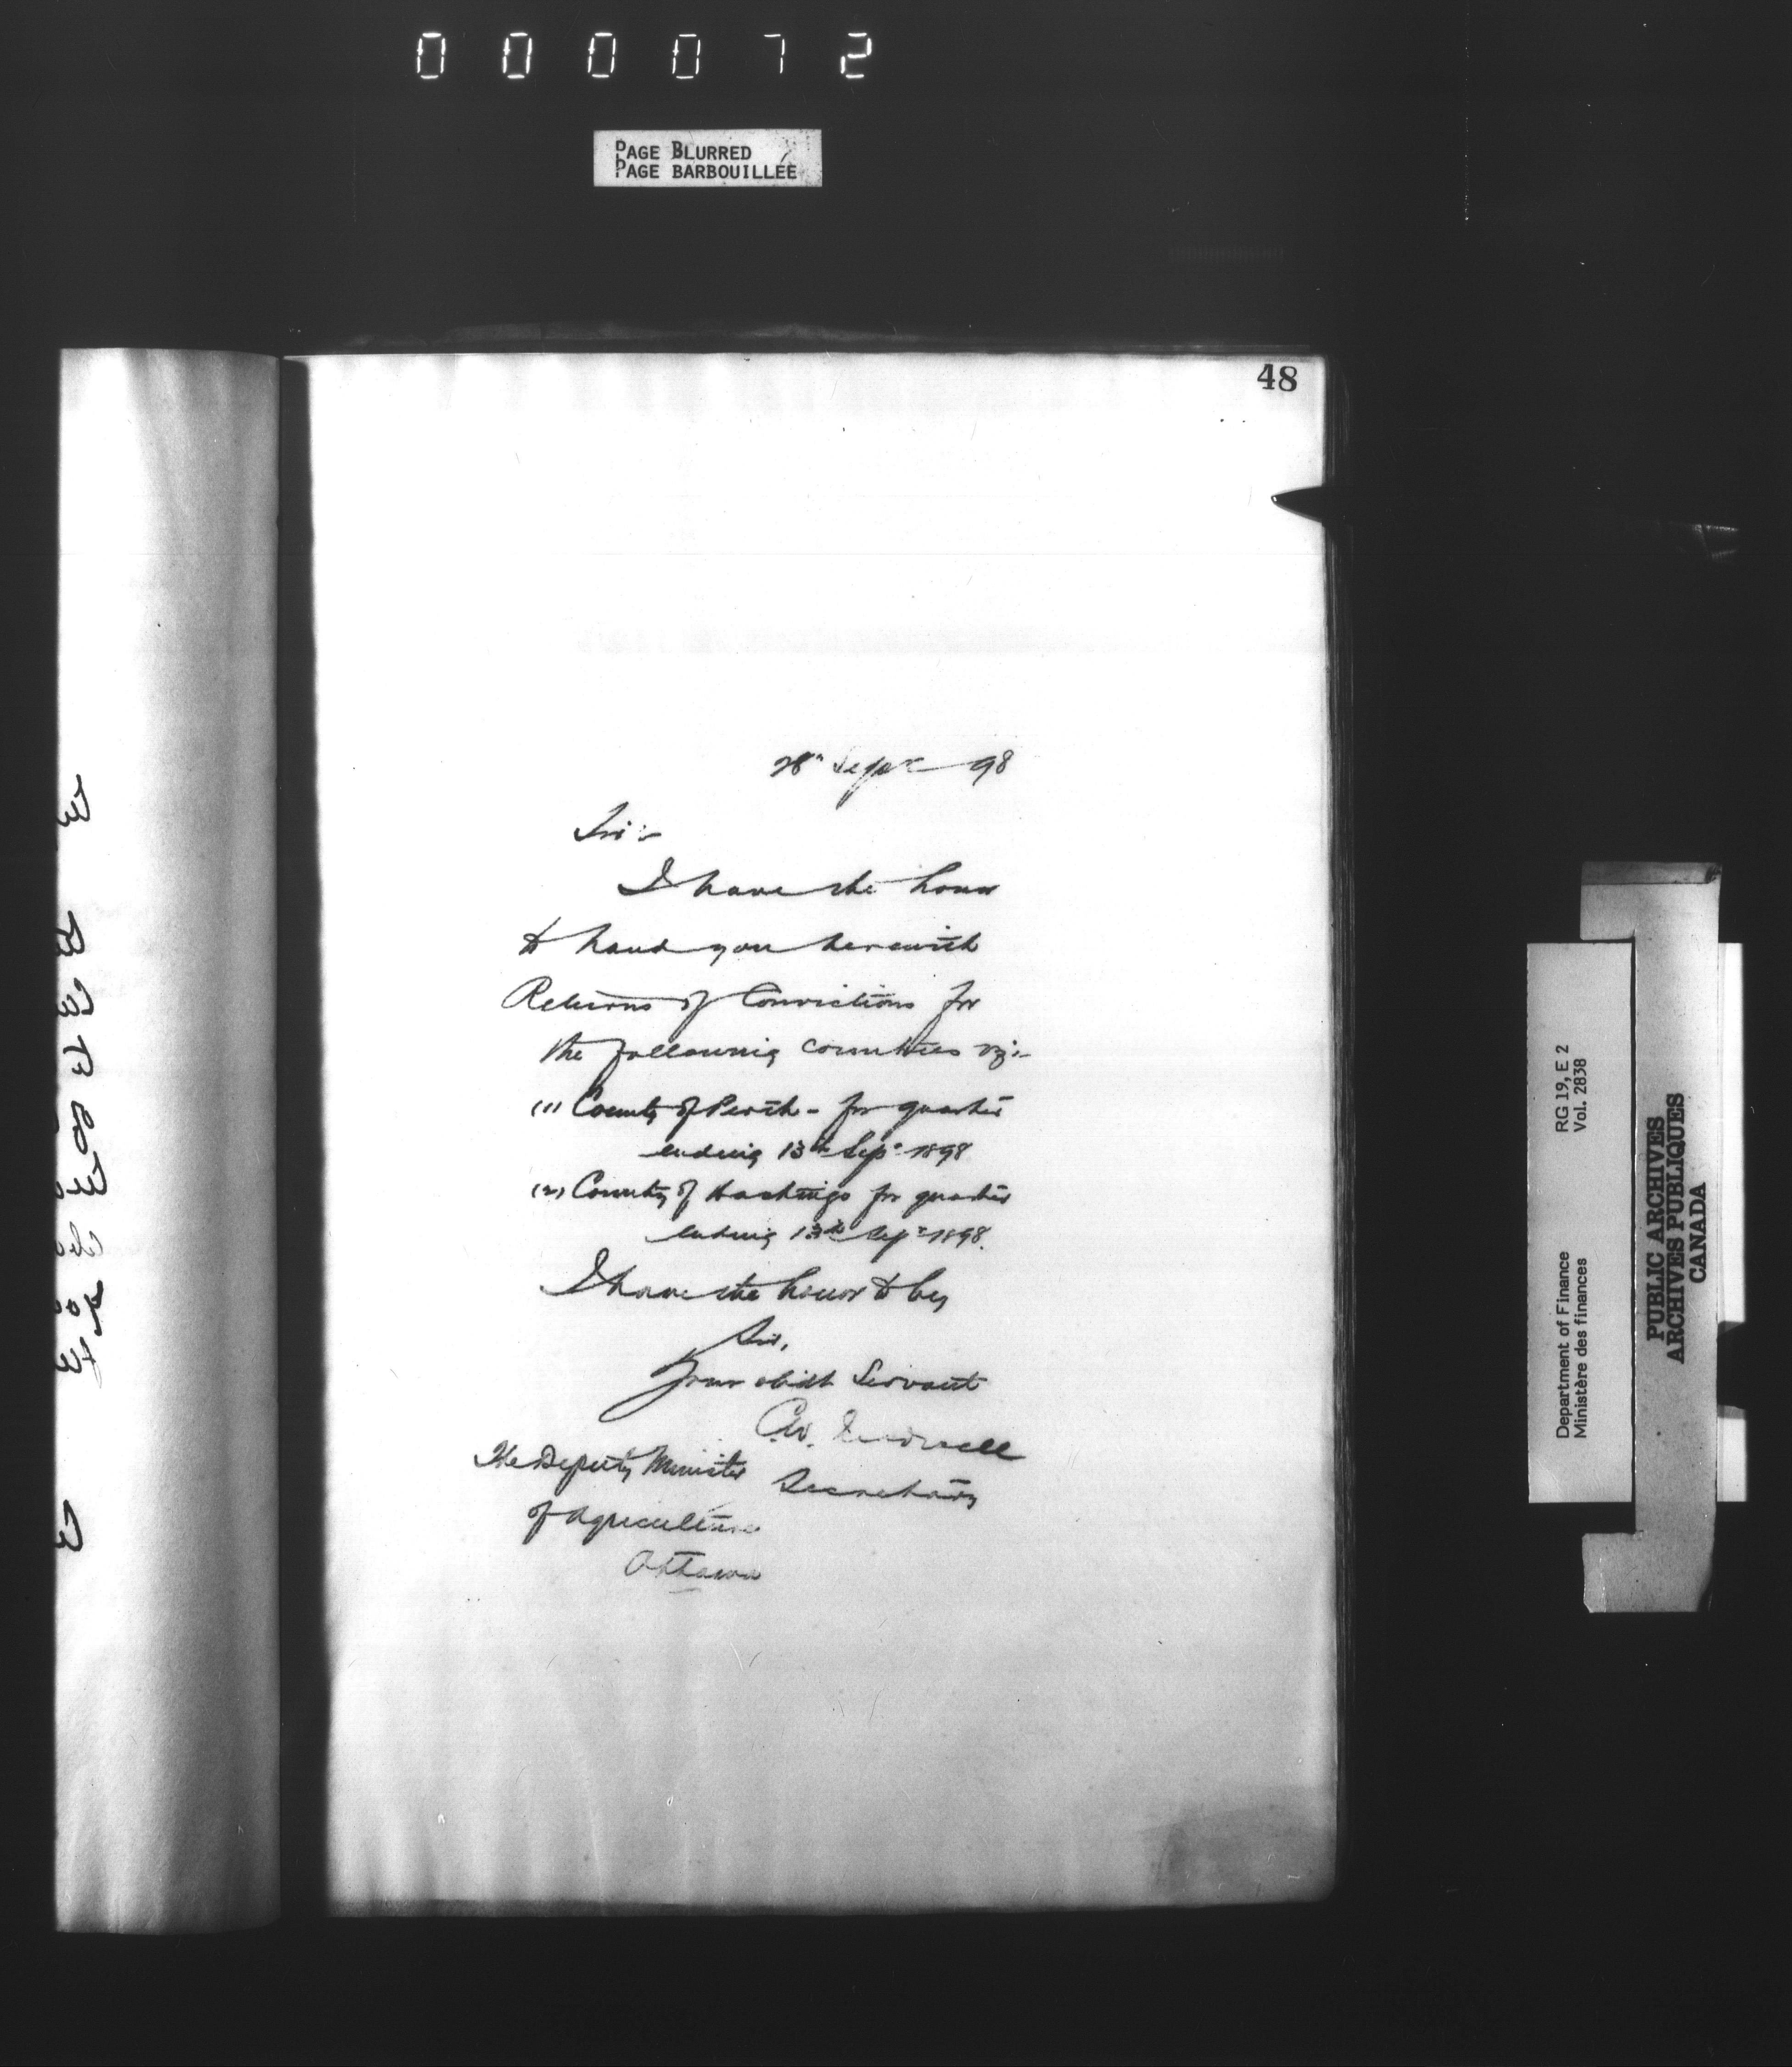 000072
PAGE BLURRED
PAGE BARBOUILLÉE
48
28th Sept 98
Sir:-
I have the honor
to hand you herewith
Returns of Convictions for
the following counties viz:-
(1) County of Perth - for quarter
ending 13th Sep 1898
(2) County of Hastings for quarter
ending 13th Sep 1898.
I have the honor to be,
Sir,
Your obedt Servant
C.W. Treadwell
The Deputy Minister
Secretary
of Agriculture
Ottawa
RG 19, E 2
Vol. 2838
Department of Finance
Ministère des finances
PUBLIC ARCHIVES
ARCHIVES PUBLIQUES
CANADA